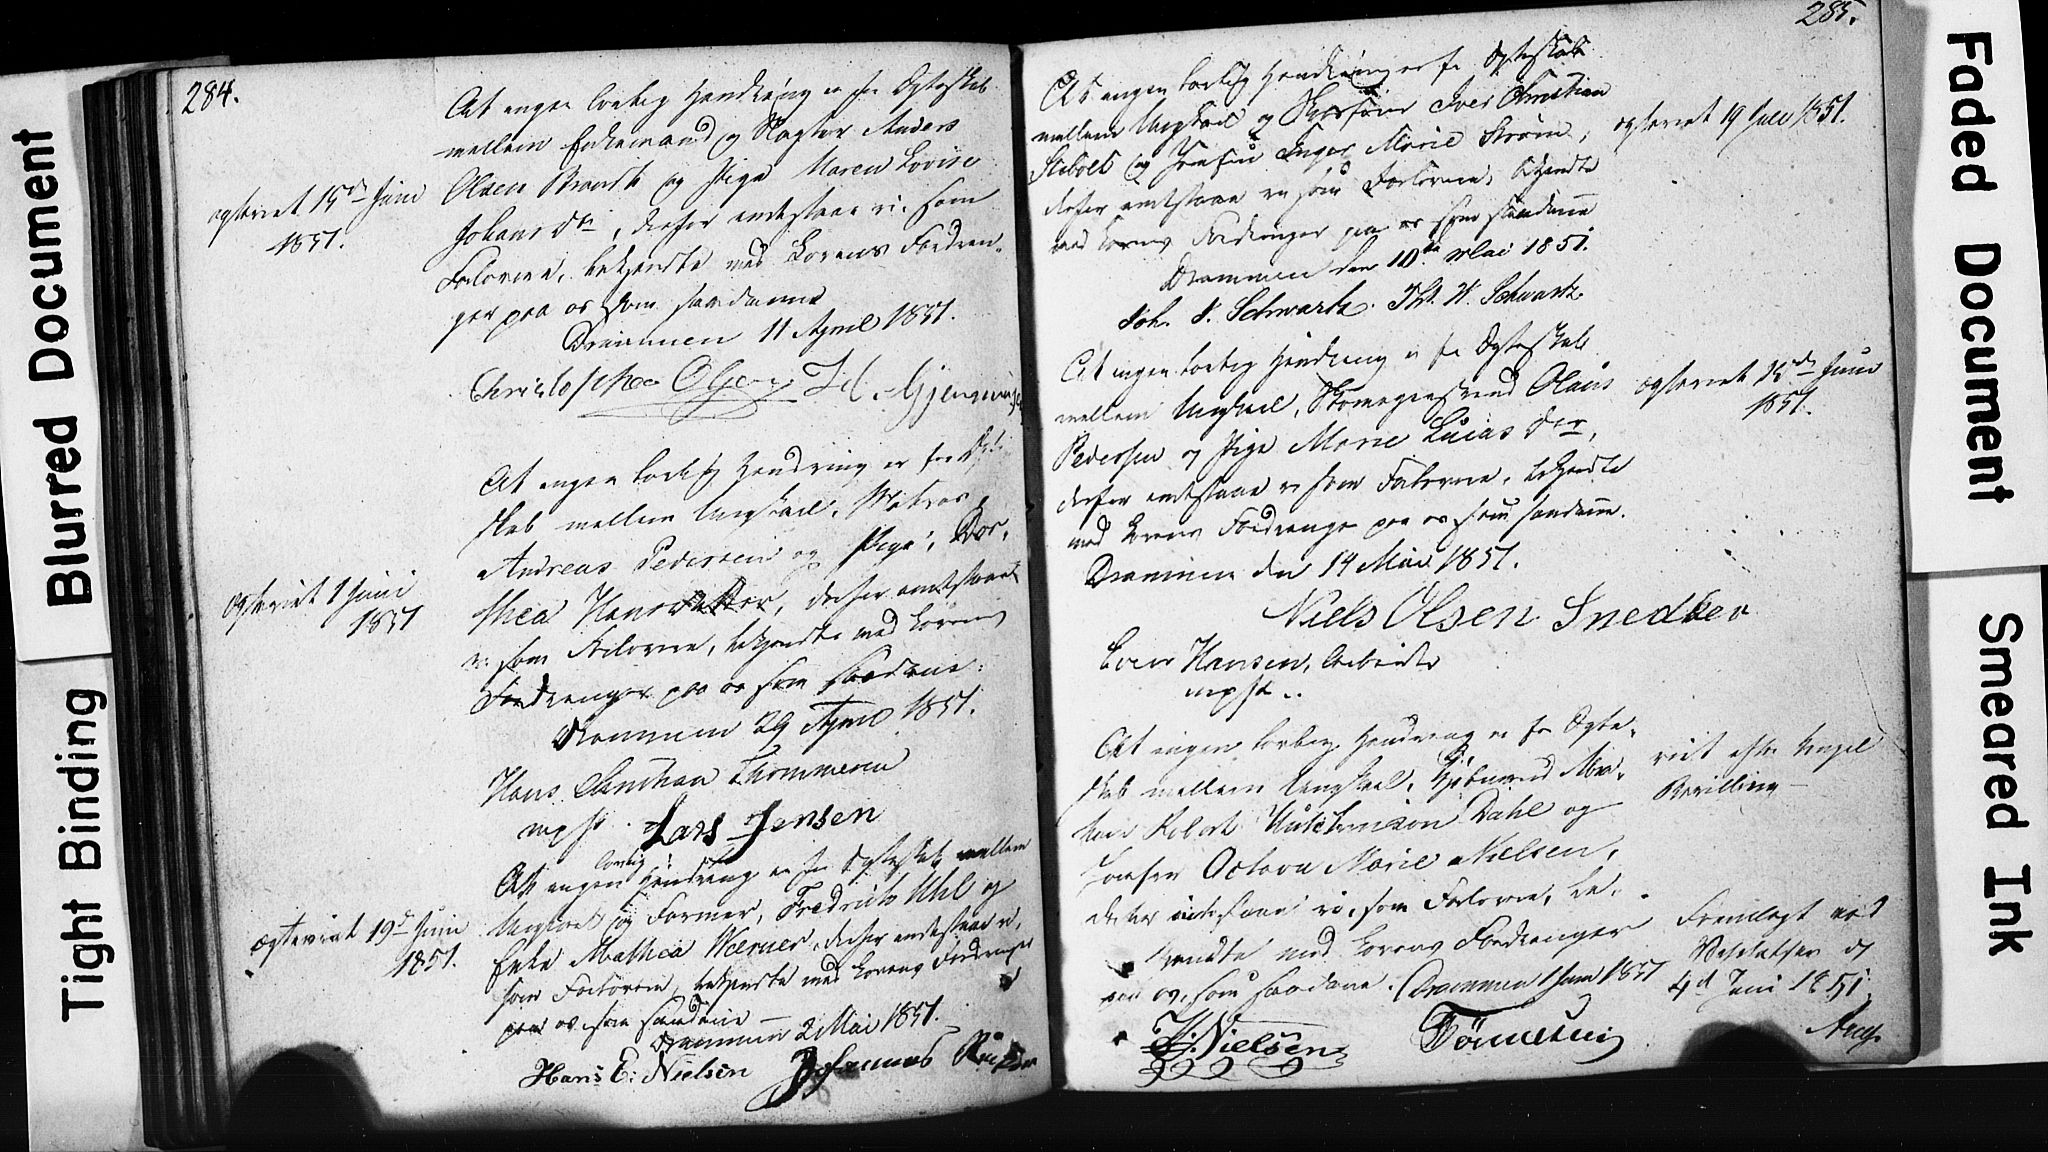 Blurred Document
Tight Binding
284.
At ingen lovlig Hindring er for Egteskab
mellem Enkemand og Slagter Anders
Olsen Brandt og Pige Maren Lovise
Johansdtr, derfor indestaae vi som
Forlovere, bekjendte med Lovens Fordrin-
ger paa os som saadanne
Drammen 11 April 1851.
Christopher Olsen
ægteviet 15de Juni
1851.
At ingen lovlig Hindring er for Egte-
skab mellem Ungkarl, Matros
Andreas Pedersen og Pige, Dor-
thea Hansdatter, derfor indestaae
vi som Forlovere, bekjendte med Lovens
Fordringer paa os som saadane:
Drammen 29 April 1851.
Hans
mp
Lars Jensen
ægteviet 1 Juni
1851
At ingen lovlig Hindring er for Egteskab mellem
Ungkarl og Former, Fredrich Uhl og
Enke Mathea Werner, derfor indestaae vi,
som Forlovere, bekjendte med Lovens Fordringer
paa os som saadane –
Drammen 2 Mai 1851.
Hans E. Nielsen Johannes
ægteviet 19de Juni
1851.
285.
At ingen lovlig Hindring er for Egteskab
mellem Ungkarl og Iver Christian
og Jomfru Inger Marie Strøm,
derfor indestaae vi som Forlovere, bekjendte
med Lovens Fordringer paa os som saadanne
Drammen den 10de Mai 1851.
Joh. Schwartz. Schwartz
ægteviet 19 Juli 1851.
At ingen lovlig Hindring er for Egteskab
mellem Ungkarl, Skomagersvend Olaus
Pedersen og Pige Marie Lucasdtr,
derfor indestaae vi som Forlovere, bekjendte
med Lovens Fordringer paa os som saadanne.
Drammen den 14 Mai 1851.
Niels Olsen Snedker
Hansen, Arbeider
mp
ægteviet 15de Juni
1851.
At ingen lovlig Hindring er for Egte-
skab mellem Ungkarl,
Robert Hutchinson Dahl og
Jomfru Octava Marie Nielsen,
derfor indestaae vi, som Forlovere, be-
kjendte med Lovens Fordringer
paa os, som saadane. Drammen 1 Juni 1851
H. Nielsen
viet efter kongel
Bevilling –
Fremlagt ved
Vielsen
4de Juni 1851.
Faded Document
Smeared Ink